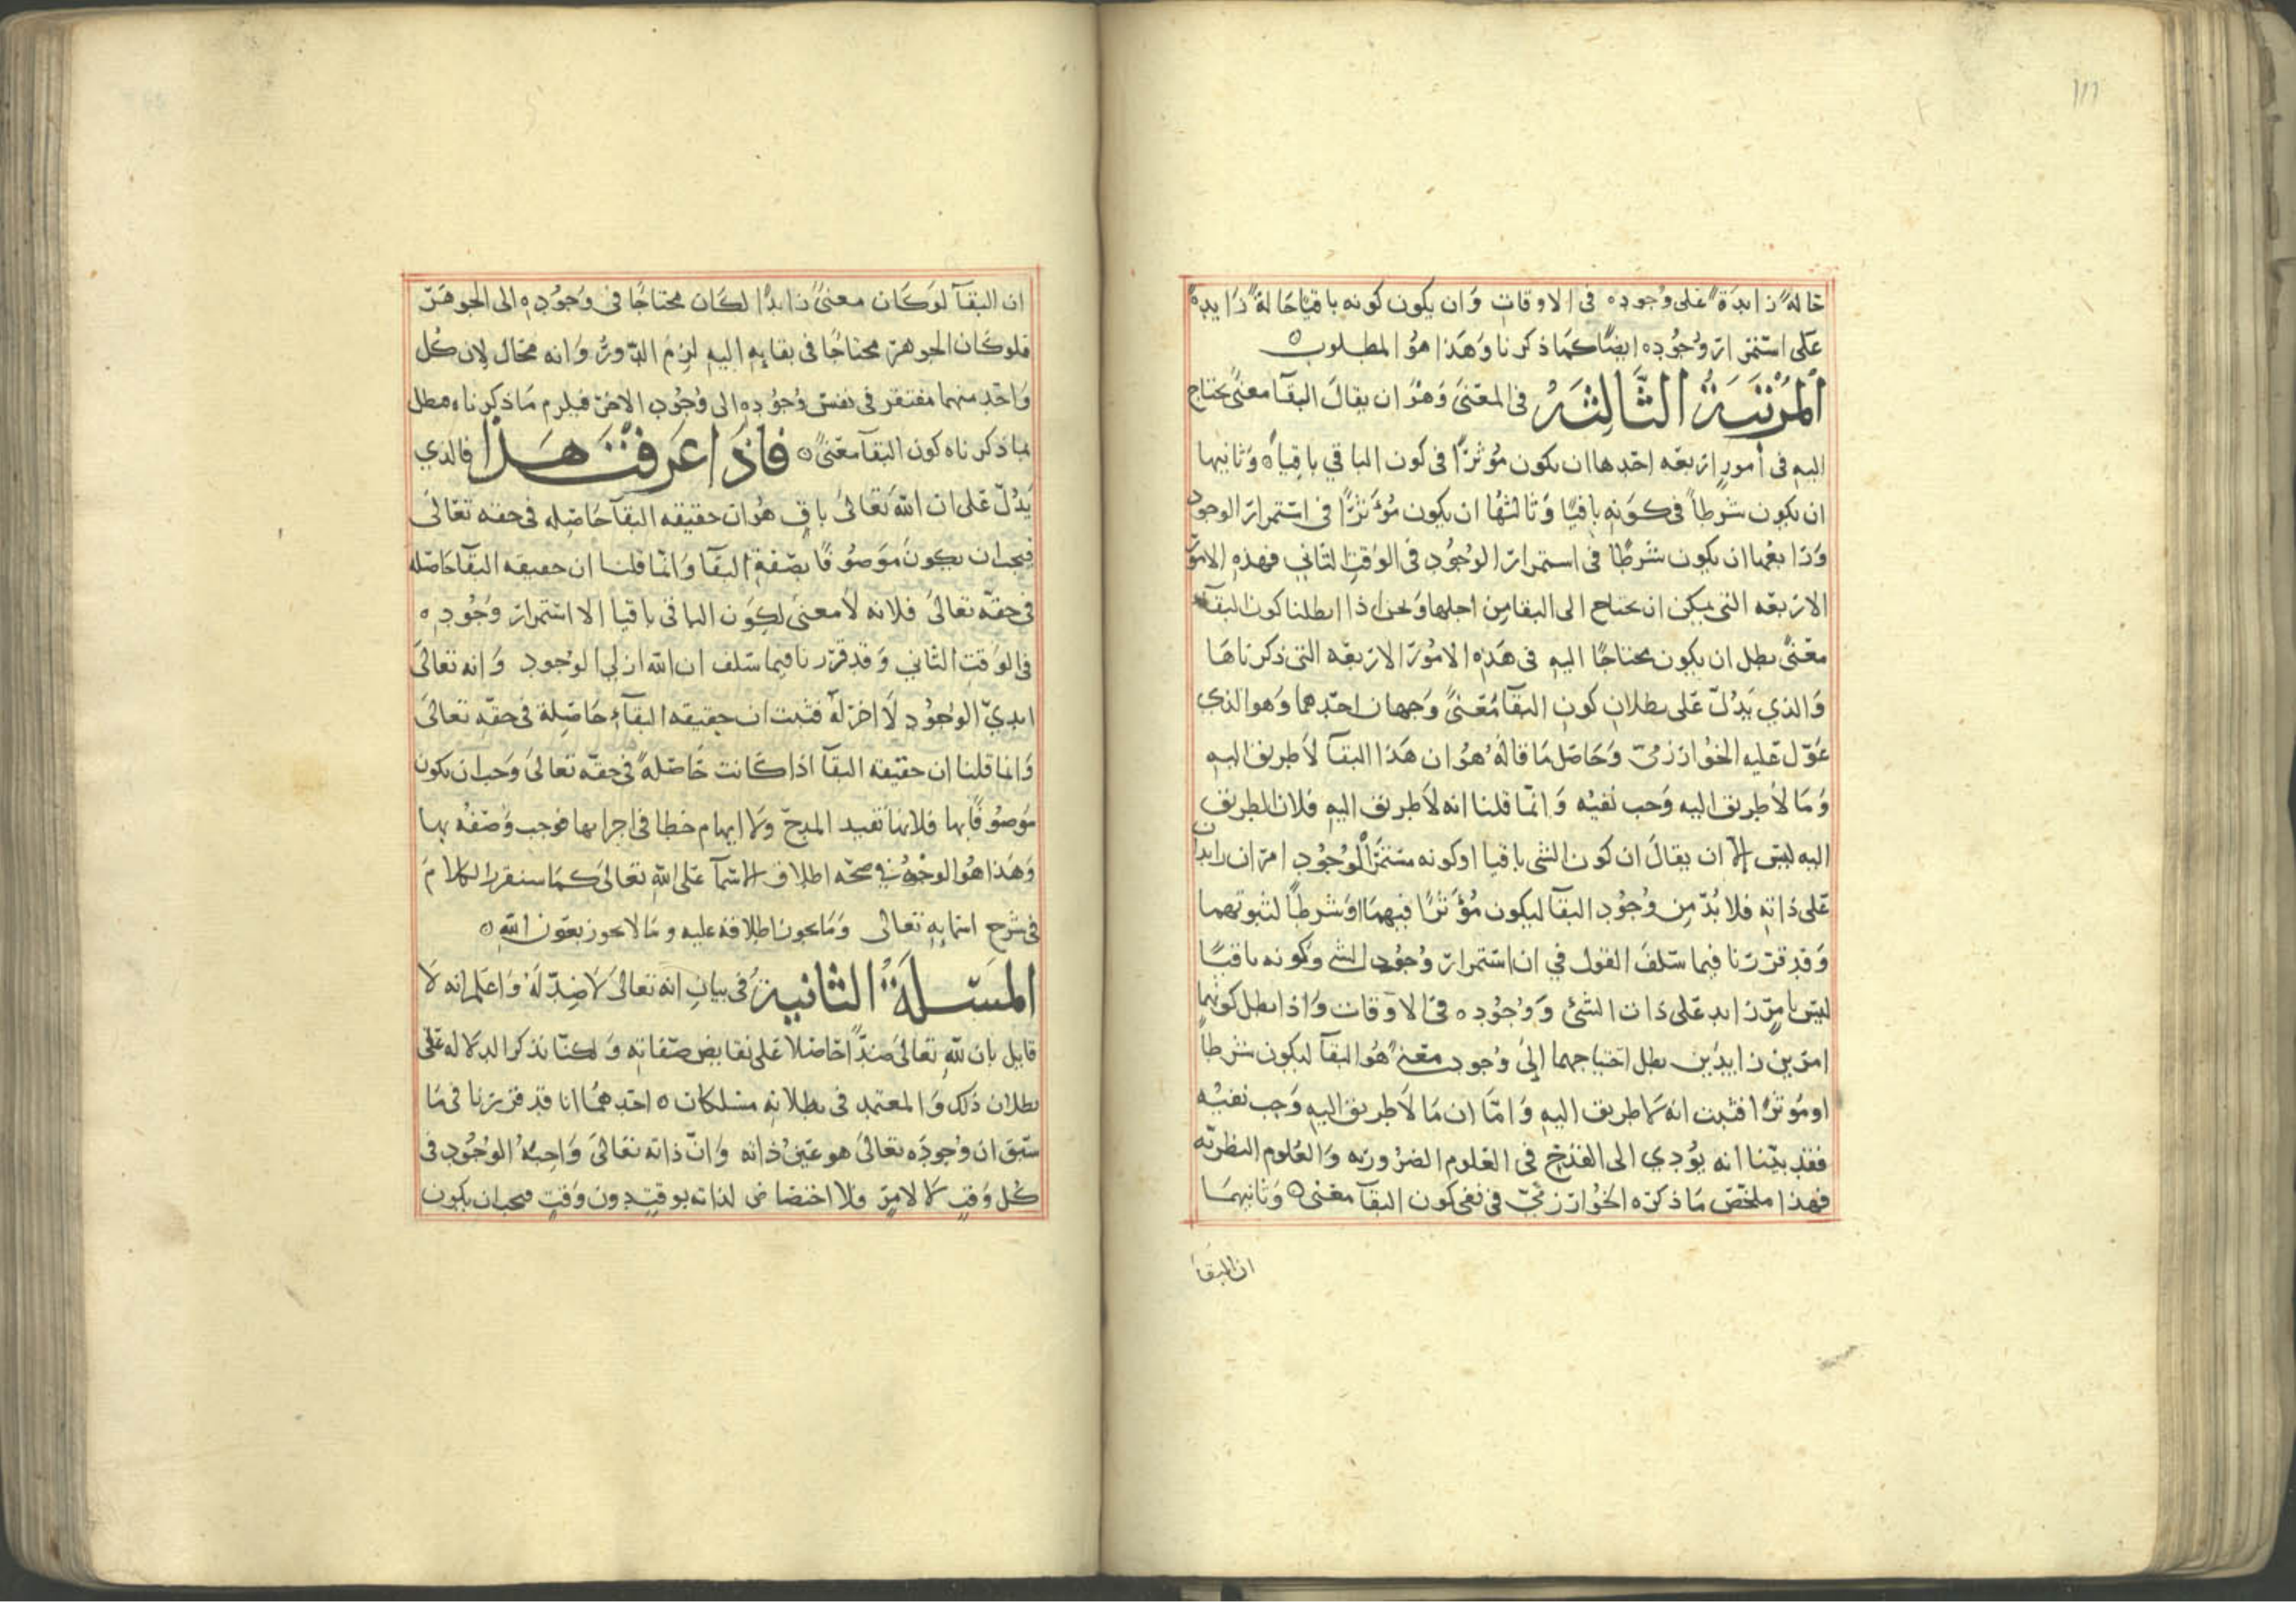 ١١١
حالة زايدة على وجوده فى الاوقات وان يكون كونه باقيا حالة زايدة
على استمرار وجوده ايضا كما ذكرنا وهذا هو المطلوب ه
المرتبة الثالثه فى المعنى وهو ان يقال البقآ معنى يحتاج
اليه فى أمور اربعه احدها ان يكون مؤثرا فى كون الباقي باقيا ه وثانيها
ان يكون شرطا فى كونه باقيا وثالثها ان يكون مؤثرا فى استمرار الوجود
ورابعها ان يكون شرطا فى استمرار الوجود فى الوقت الثاني فهذه الامور
الاربعه التى يمكن ان يحتاج الى البقا من اجلها ونحن اذا ابطلنا كون البقآ
معنى بطل ان يكون محتاجا اليه فى هذه الامور الاربعه التى ذكرناها
والذي يدل على بطلان كون البقآ معنى وجهان احدهما وهو الذي
عول عليه الخوارزمى وحاصل ما قاله هو ان هذا البقآ لا طريق اليه
وما لا طريق اليه وجب نفيه وانما قلنا انه لا طريق اليه فلان الطريق
اليه ليس الا ان يقال ان كون الشى باقيا او كونه مستمر الوجود امران زايدان
على ذاته فلا بد من وجود البقآ ليكون مؤثرا فيهما او شرطا لثبوتهما
وقد قررنا فيما سلف القول في ان استمرار وجود الشى وكونه باقيا
ليس بامر زايد على ذات الشئ ووجوده فى الاوقات واذا بطل كونهما
امرين زايدين بطل احتياجهما إلى وجود معنى هو البقآ ليكون شرطا
او مؤثرا فثبت انه لا طريق اليه واما ان ما لا طريق اليه وجب نفيه
فقد بينا انه يؤدي الى القدح فى العلوم الضروريه والعلوم النظريه
فهذا ملخص ما ذكره الخوارزمي فى نفى كون البقآ معنى ه وثانيهما
ان البقا
ان البقآ لو كان معنى زايدا لكان محتاجا فى وجوده الى الجوهر
فلو كان الجوهر محتاجا فى بقايه اليه لزم الدور وانه محال لان كل
واحد منهما مفتقر فى نفس وجوده الى وجود الاخر فيلزم ما ذكرناه فبطل
بما ذكرناه كون البقآ معنى ه فاذا عرفت هذا فالذي
يدل على ان الله تعالى باق هو ان حقيقه البقآ حاصله فى حقه تعالى
فيجب ان يكون موصوفا بصفة البقآ وانما قلنا ان حقيقه البقآ حاصله
فى حقه تعالى فلانه لا معنى لكون الباقى باقيا الا استمرار وجوده
فى الوقت الثاني وقد قررنا فيما سلف ان الله ازلي الوجود وانه تعالى
ابدي الوجود لا اخر له فثبت ان حقيقه البقآء حاصلة فى حقه تعالى
وانما قلنا ان حقيقه البقآ اذا كانت حاصلة فى حقه تعالى وجب ان يكون
موصوفا بها فلانها تفيد المدح ولا ايهام خطا فى اجرايها فوجب وصفه بها
وهذا هو الوجه في صحه اطلاق الاسمآ على الله تعالى كما سنقرر الكلام
فى شرح اسمايه تعالى وما يجوز اطلاقه عليه وما لا يجوز بعون الله ه
المسلة الثانية فى بيان انه تعالى لا ضد له واعلم انه لا
قايل بان لله تعالى ضدا حاصلا على نقايض صفاته ولكنا نذكر الدلاله على
بطلان ذلك والمعتمد فى بطلانه مسلكان ه احدهما انا قد قررنا فى ما
سبق ان وجوده تعالى هو عين ذاته وان ذاته تعالى واجبة الوجود فى
كل وقت لا لامر ولا اختصاص لذاته بوقت دون وقت فيجب ان يكون